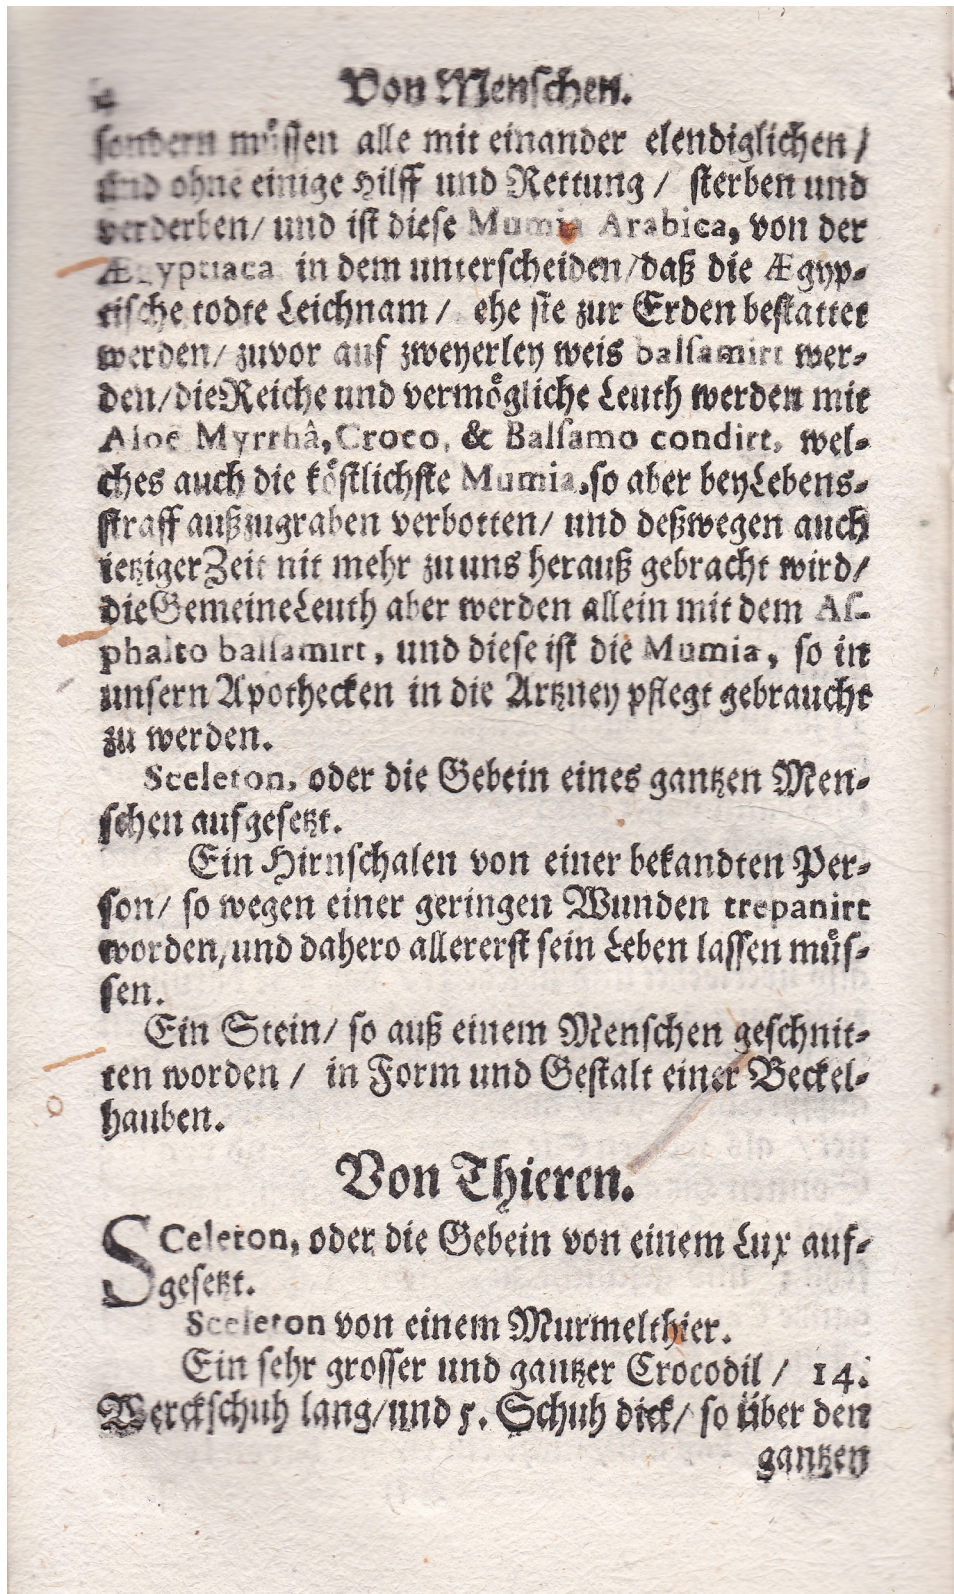 4 Von Menschen.
sondern müssen alle mit einander elendiglichen /
und ohne einige Hilff und Rettung / sterben und
verderben/ und ist diese Mumia Arabica, von der
Ægyptiaca in dem unterscheiden/daß die Ægyp-
tische todte Leichnam / ehe sie zur Erden bestattet
werden/ zuvor auf zweyerley weis balsamirt wer-
den/die Reiche und vermögliche Leuth werden mit
Aloë Myrrhâ, Croco, & Balsamo condirt, wel-
ches auch die köstlichste Mumia, so aber bey Lebens-
straff außzugraben verbotten/ und deßwegen auch
ietziger Zeit nit mehr zu uns herauß gebracht wird/
die Gemeine Leuth aber werden allein mit dem As-
phalto balsamirt, und diese ist die Mumia, so in
unsern Apothecken in die Artzney pflegt gebraucht
zu werden.
Sceleton, oder die Gebein eines gantzen Men-
schen aufgesetzt.
Ein Hirnschalen von einer bekandten Per-
son/ so wegen einer geringen Wunden trepanirt
worden/und dahero allererst sein Leben lassen müs-
sen.
Ein Stein/ so auß einem Menschen geschnit-
ten worden / in Form und Gestalt einer Beckel-
hauben.
Von Thieren.
SCeleton, oder die Gebein von einem Lux auf-
gesetzt.
Sceleton von einem Murmelthier.
Ein sehr grosser und gantzer Crocodil / 14.
Werckschuh lang/und 5. Schuh dick/ so über den
gantzen